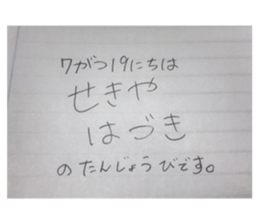 7がつ19にちは
せきや
はづき
のたんじょうびです。